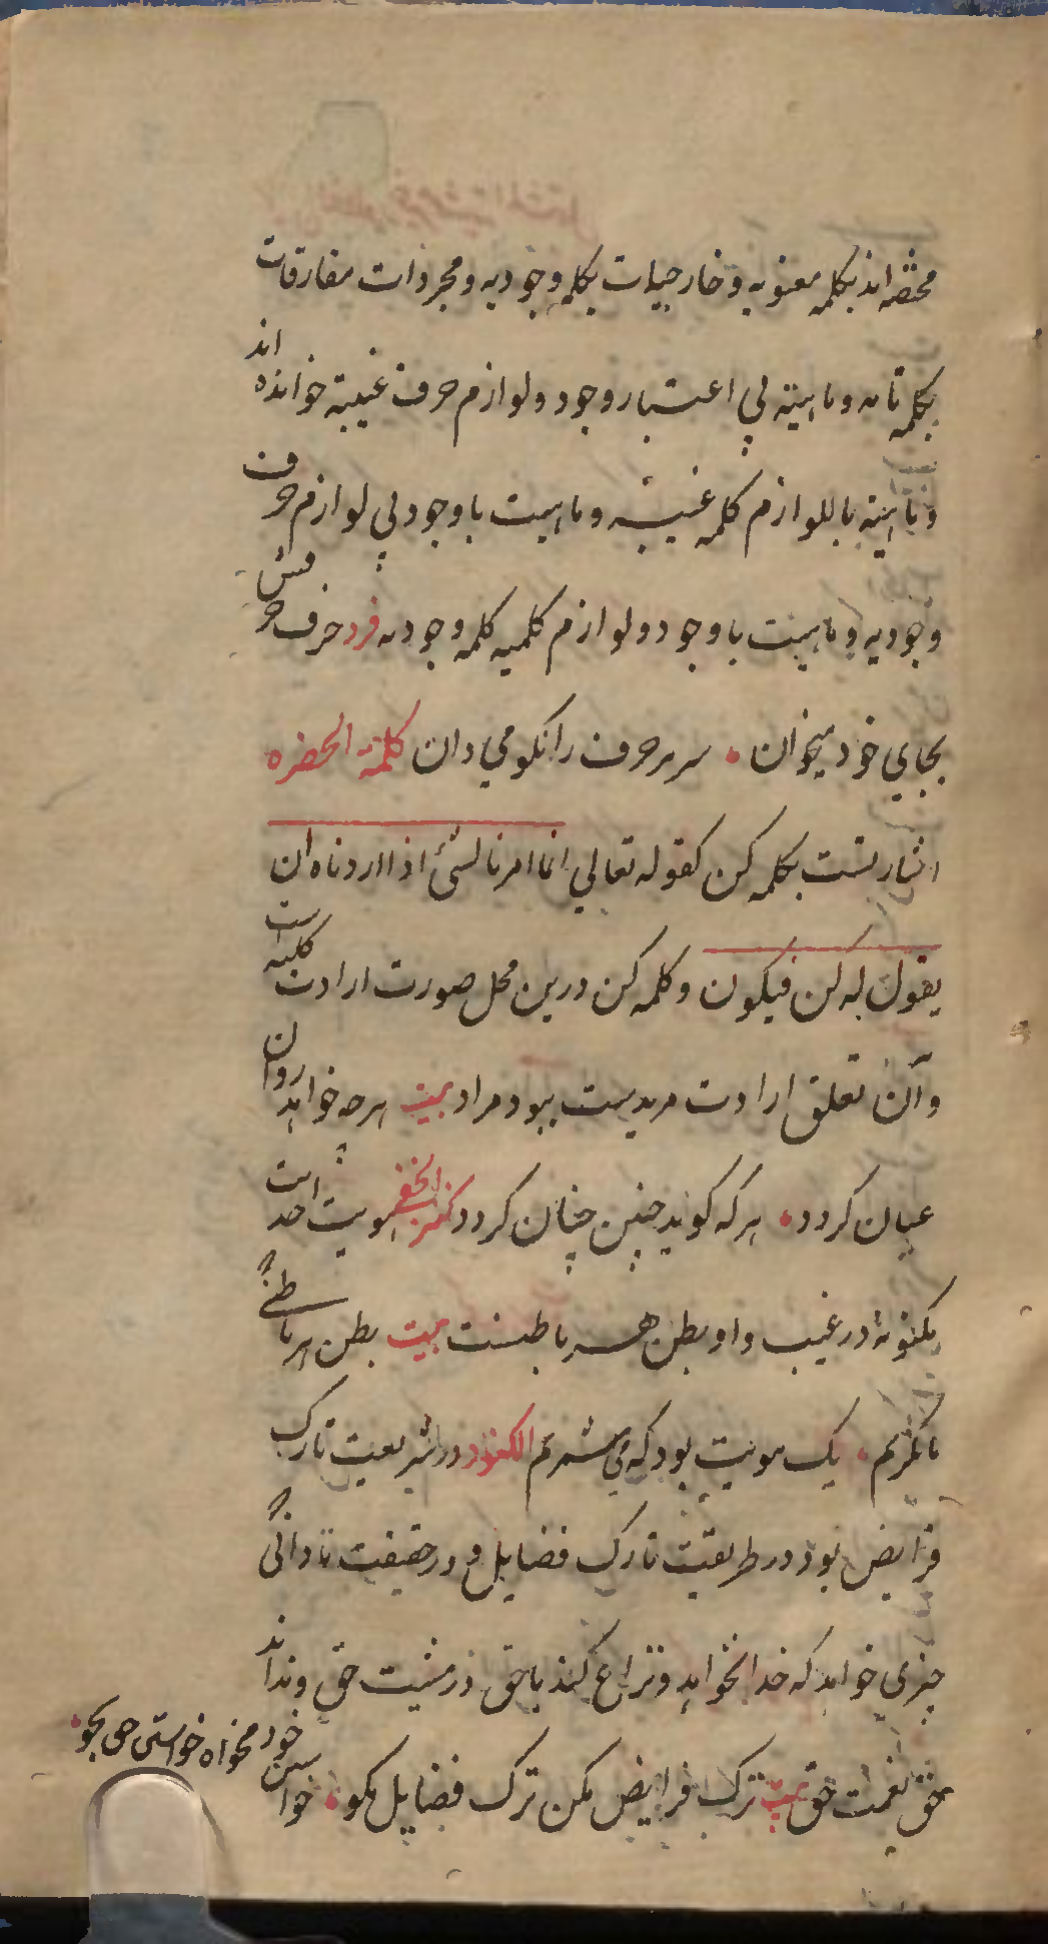 محضه اند بکلمه معنویه و خارجیات بکلمه وجودیه و مجردات مفارقات
بکلمه تامه و ماهیته بی اعتبار وجود و لوازم حرف غیبیة خوانده اند
و ماهیته باللوازم کلمه غیبیه و ماهیت با وجود بی لوازم حرف
وجودیه و ماهیت با وجود و لوازم کلمیه کلمه وجودیه فرد حرف حرفش
بجای خود میخوان سر هر حرف را نکو می دان کلمة الحضره
اشارتست بکلمه کن کقوله تعالی انما امرنا لشئ اذا اردناه ان
یقول له کن فیکون و کلمه کن درین محل صورت ارادت کلیه است
و آن تعلق ارادت مریدست ببود مراد بیت هر چه خواهد روان
عیان کردد هر که کوید چنین چنان کردد کنز الخفی هویت احد است
مکنونه در غیب و او بطن هر باطنست بیت بطن هر باطنی که
ما نکریم یک هویت بود که می شمریم الکنود در شریعت تارک
فرایض بود در طریقت تارک فضایل و در حقیقت تا دانی که
چیزی خواهد که خدا نخواهد و نزاع کند با حق در مشیت حق و نداند
حق نعمت حق بیت ترک فرایض مکن ترک فضایل مکو خواستن خود مخواه خواستی حق بجو